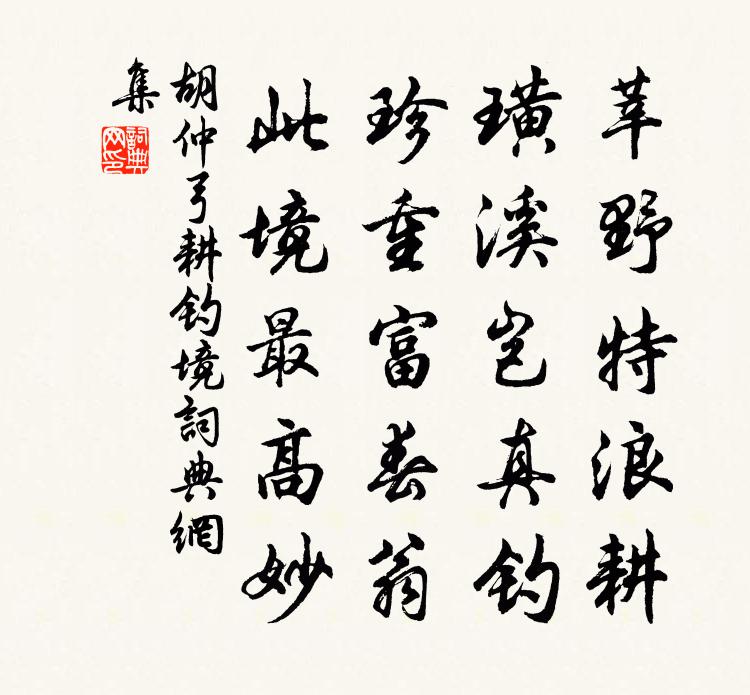 莘野特浪耕
璜溪豈真釣
珍重富春翁
此境最高妙
胡仲弓耕釣境詞典網
集
詞典網印